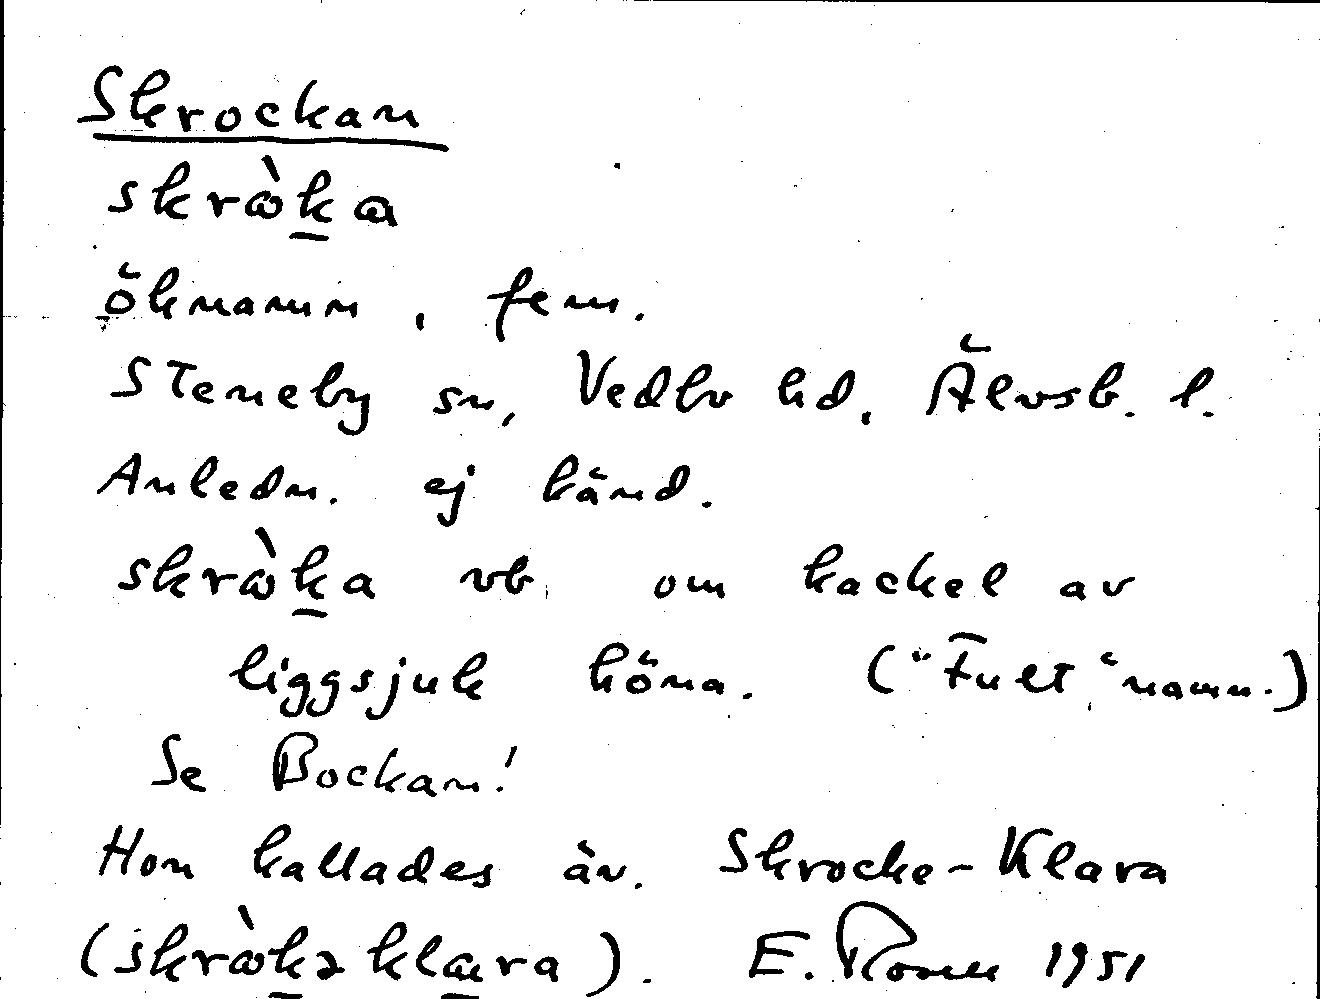 Skrockan
skrὼka
öknamn, fem.
Steneby sn, Vedbo hd, Älvsb. l.
Anledn. ej känd.
skrὼka vb. om kackel av
liggsjuk höna. ("Fult" namn.)
Se Bockan!
Hon kallades äv. Skrocke-Klara
(skrὼkə klara). E. 1951